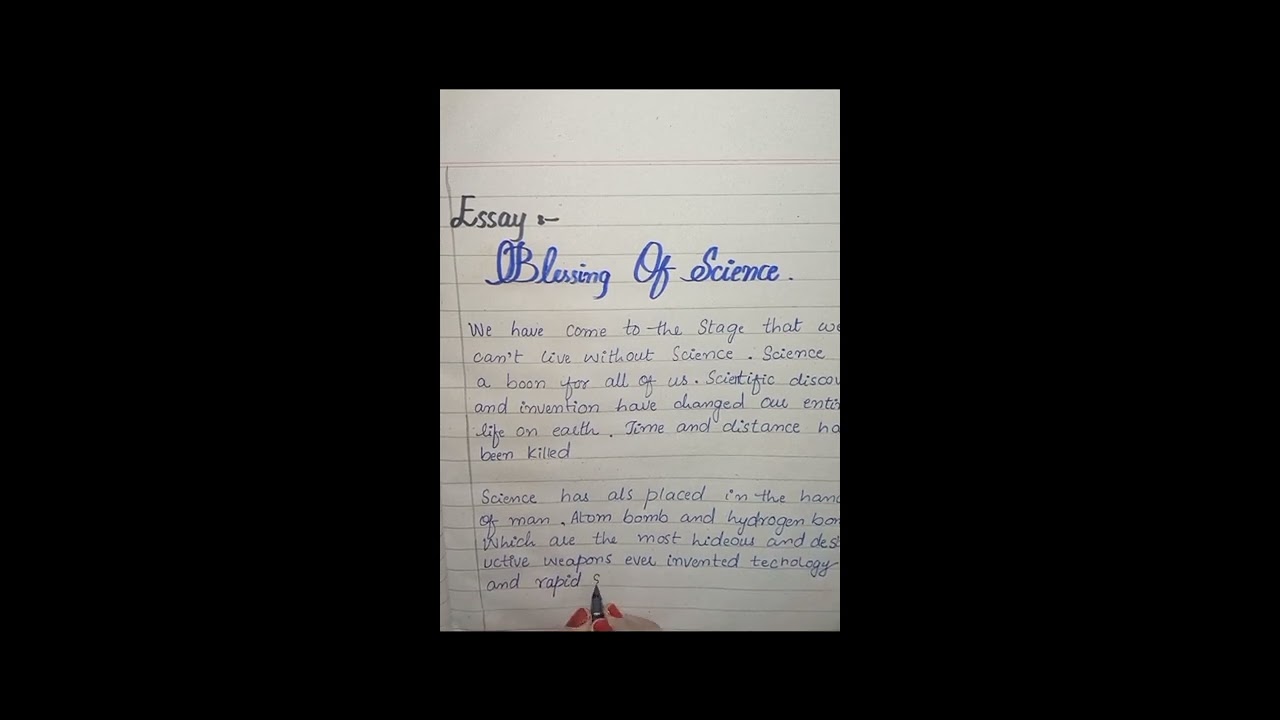 Essay :-
Blessing Of Science .
We have come to the Stage that we
can't live without Science . Science
a boon for all of us . Scientific discov
and invention have changed our entir
life on earth . Time and distance ha
been killed
Science has als placed in the hand
of man . Atom bomb and hydrogen bom
Which are the most hideous and dest
uctive weapons ever invented techology
and rapid s